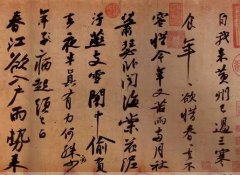 自我來黃州已過三寒
食年〻欲惜春〻去不
容惜今年又苦雨兩月秋
蕭瑟卧聞海棠花泥
汙燕支雪闇中偷負
去夜半真有力何殊病少
年子病起頭已白
春江欲入戶雨勢來